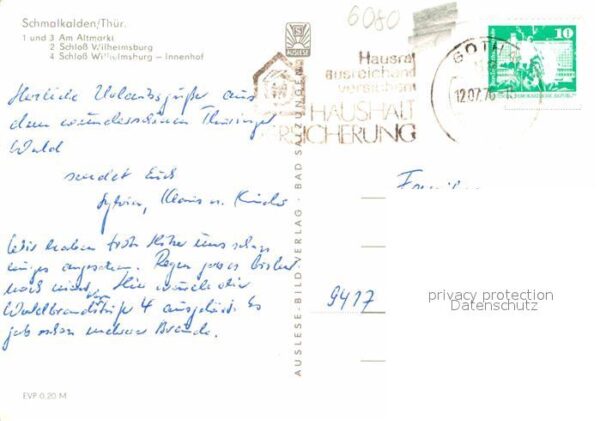 Schmalkalden/Thür.
1 und 3 Am Altmarkt
2 Schloß Wilhelmsburg
4 Schloß Wilhelmsburg – Innenhof
6080
AUSLESE
Hausrat
ausreichend
versichern
HAUSHALT
VERSICHERUNG
GOTHA
12.07.76
10
Herzliche Urlaubsgrüße aus
dem wunderschönen Thüringer
Wald
sendet Euch
Sylvia, Klaus u. Kinder
Wir haben trotz Hitze uns schon
einiges angesehen. Regen gab es bisher
noch nicht. Hier wurde die
Waldbrandstufe 4 ausgelöst. Es
gab schon mehrere Brände.
AUSLESE-BILD-VERLAG - BAD SALZUNGEN
Familie
9417
privacy protection
Datenschutz
EVP 0,20 M